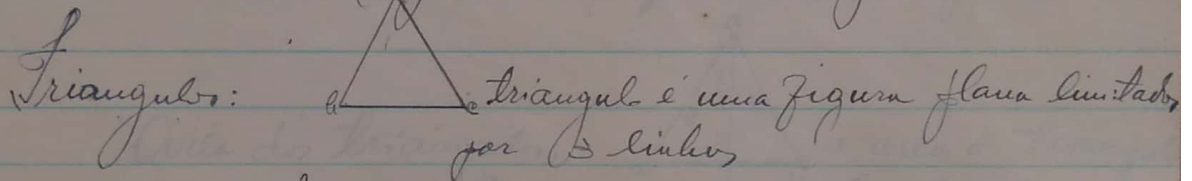 Triangulos: a c triangulo é uma figura plana limitados
por 3 linhas